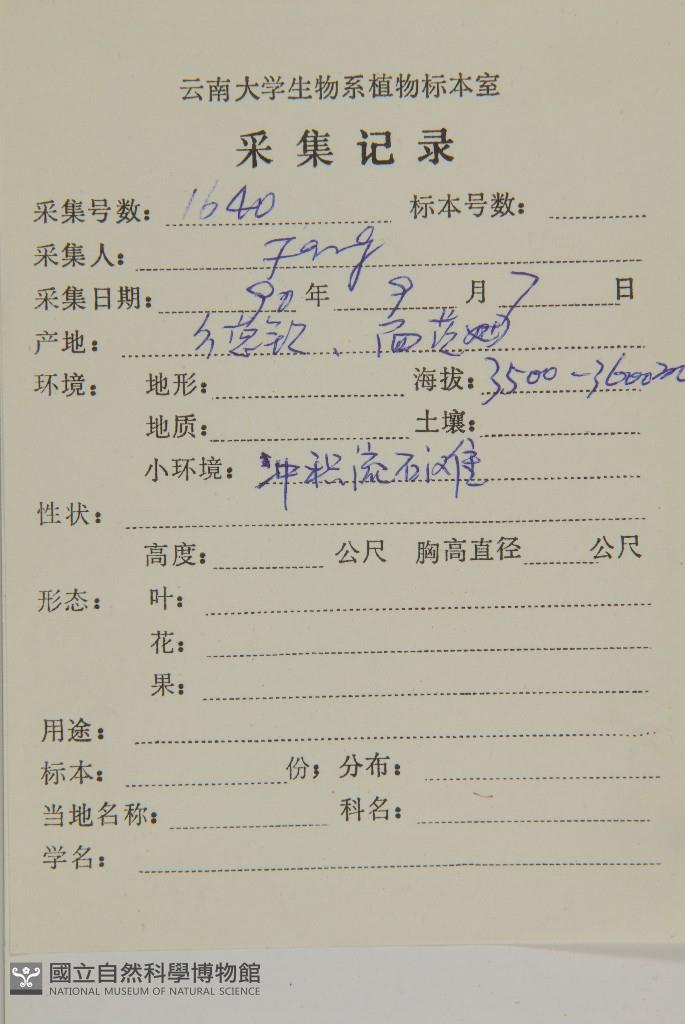 云南大学生物系植物标本室
采集记录
采集号数: 1640 标本号数:
采集人: Fang
采集日期: 90 年 9 月 7 日
产地: 德钦、
环境: 地形: 海拔: 3500-3600m
地质: 土壤:
小环境: 冲积流石滩
性状:
高度: 公尺 胸高直径 公尺
形态: 叶:
花:
果:
用途:
标本: 份; 分布:
当地名称: 科名:
学名:
國立自然科學博物館
NATIONAL MUSEUM OF NATURAL SCIENCE